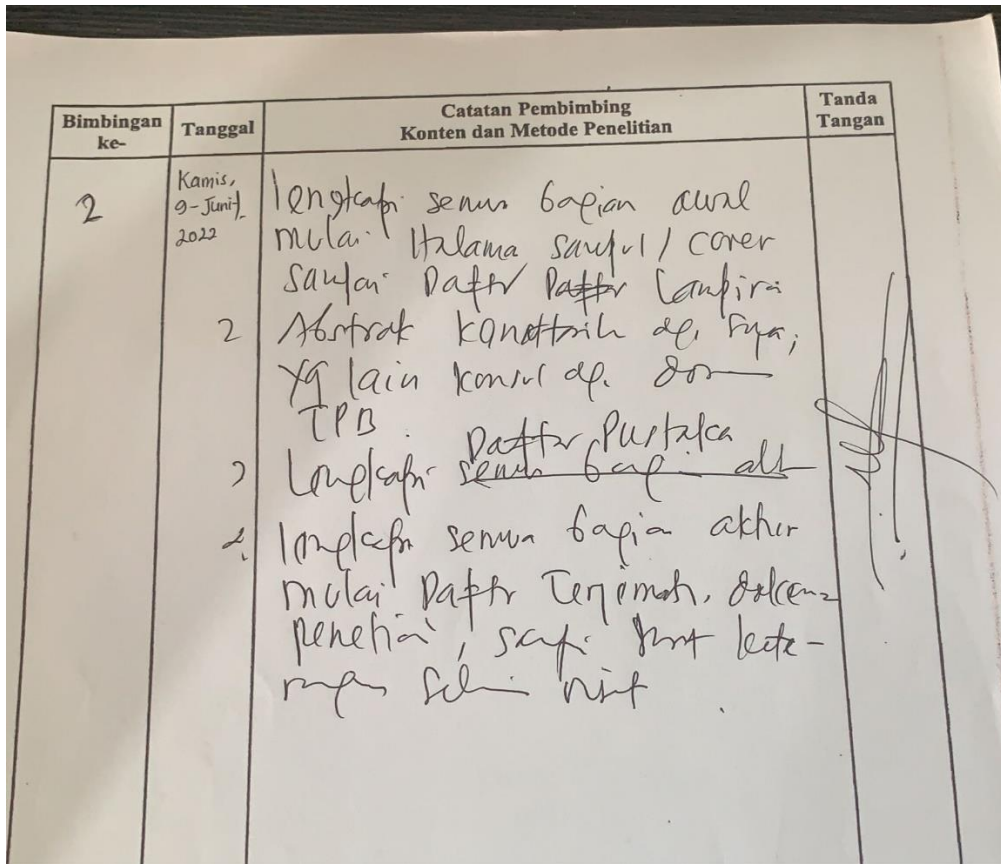 Bimbingan ke-
Tanggal
Catatan Pembimbing
Konten dan Metode Penelitian
Tanda Tangan
2
Kamis,
9-Juni-
2022
lengkapi semua bagian awal
mulai Halama sampul / cover
sampai Daftr Daftr Lampira
2 Abstrak
yg lain konsul dg. dosen
TPB.
Daftar Pustaka
) Lengkapi semua bagi
lengkapi semua bagian akhir
mulai Daftr Terjemah,
peneltian, sampai surat kete-